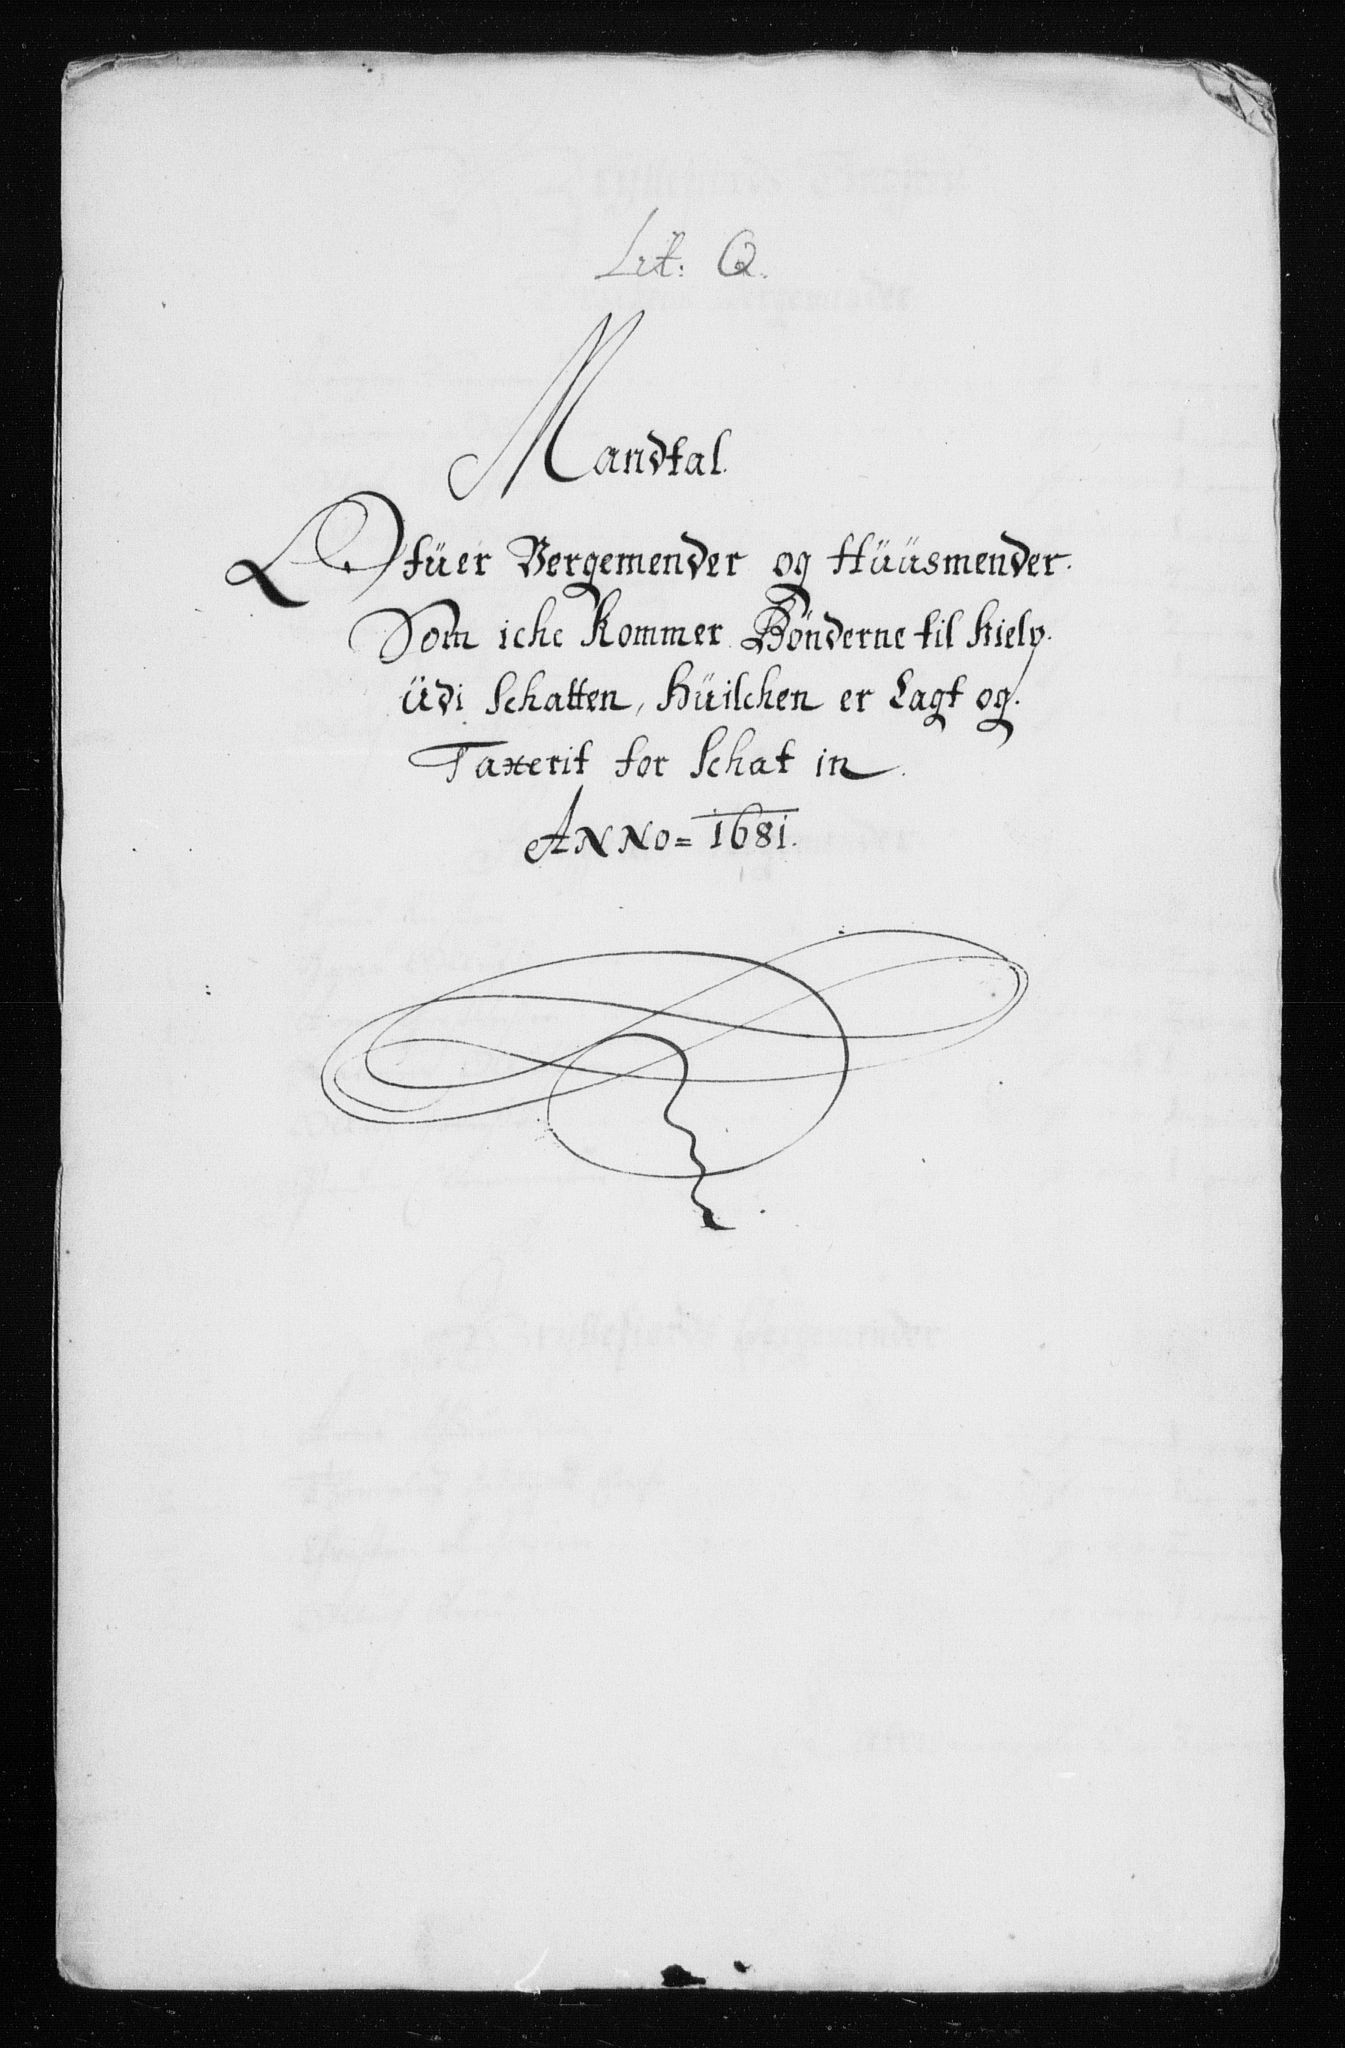 Lit: Q.
Mandtal.
Ofüer Bergemender og Hüüsmender.
Som iche Kommer Bönderne til hielp.
Üdi Schatten, Hüilchen er Lagt og.
Taxerit for Schat in.
ANNO= 1681.